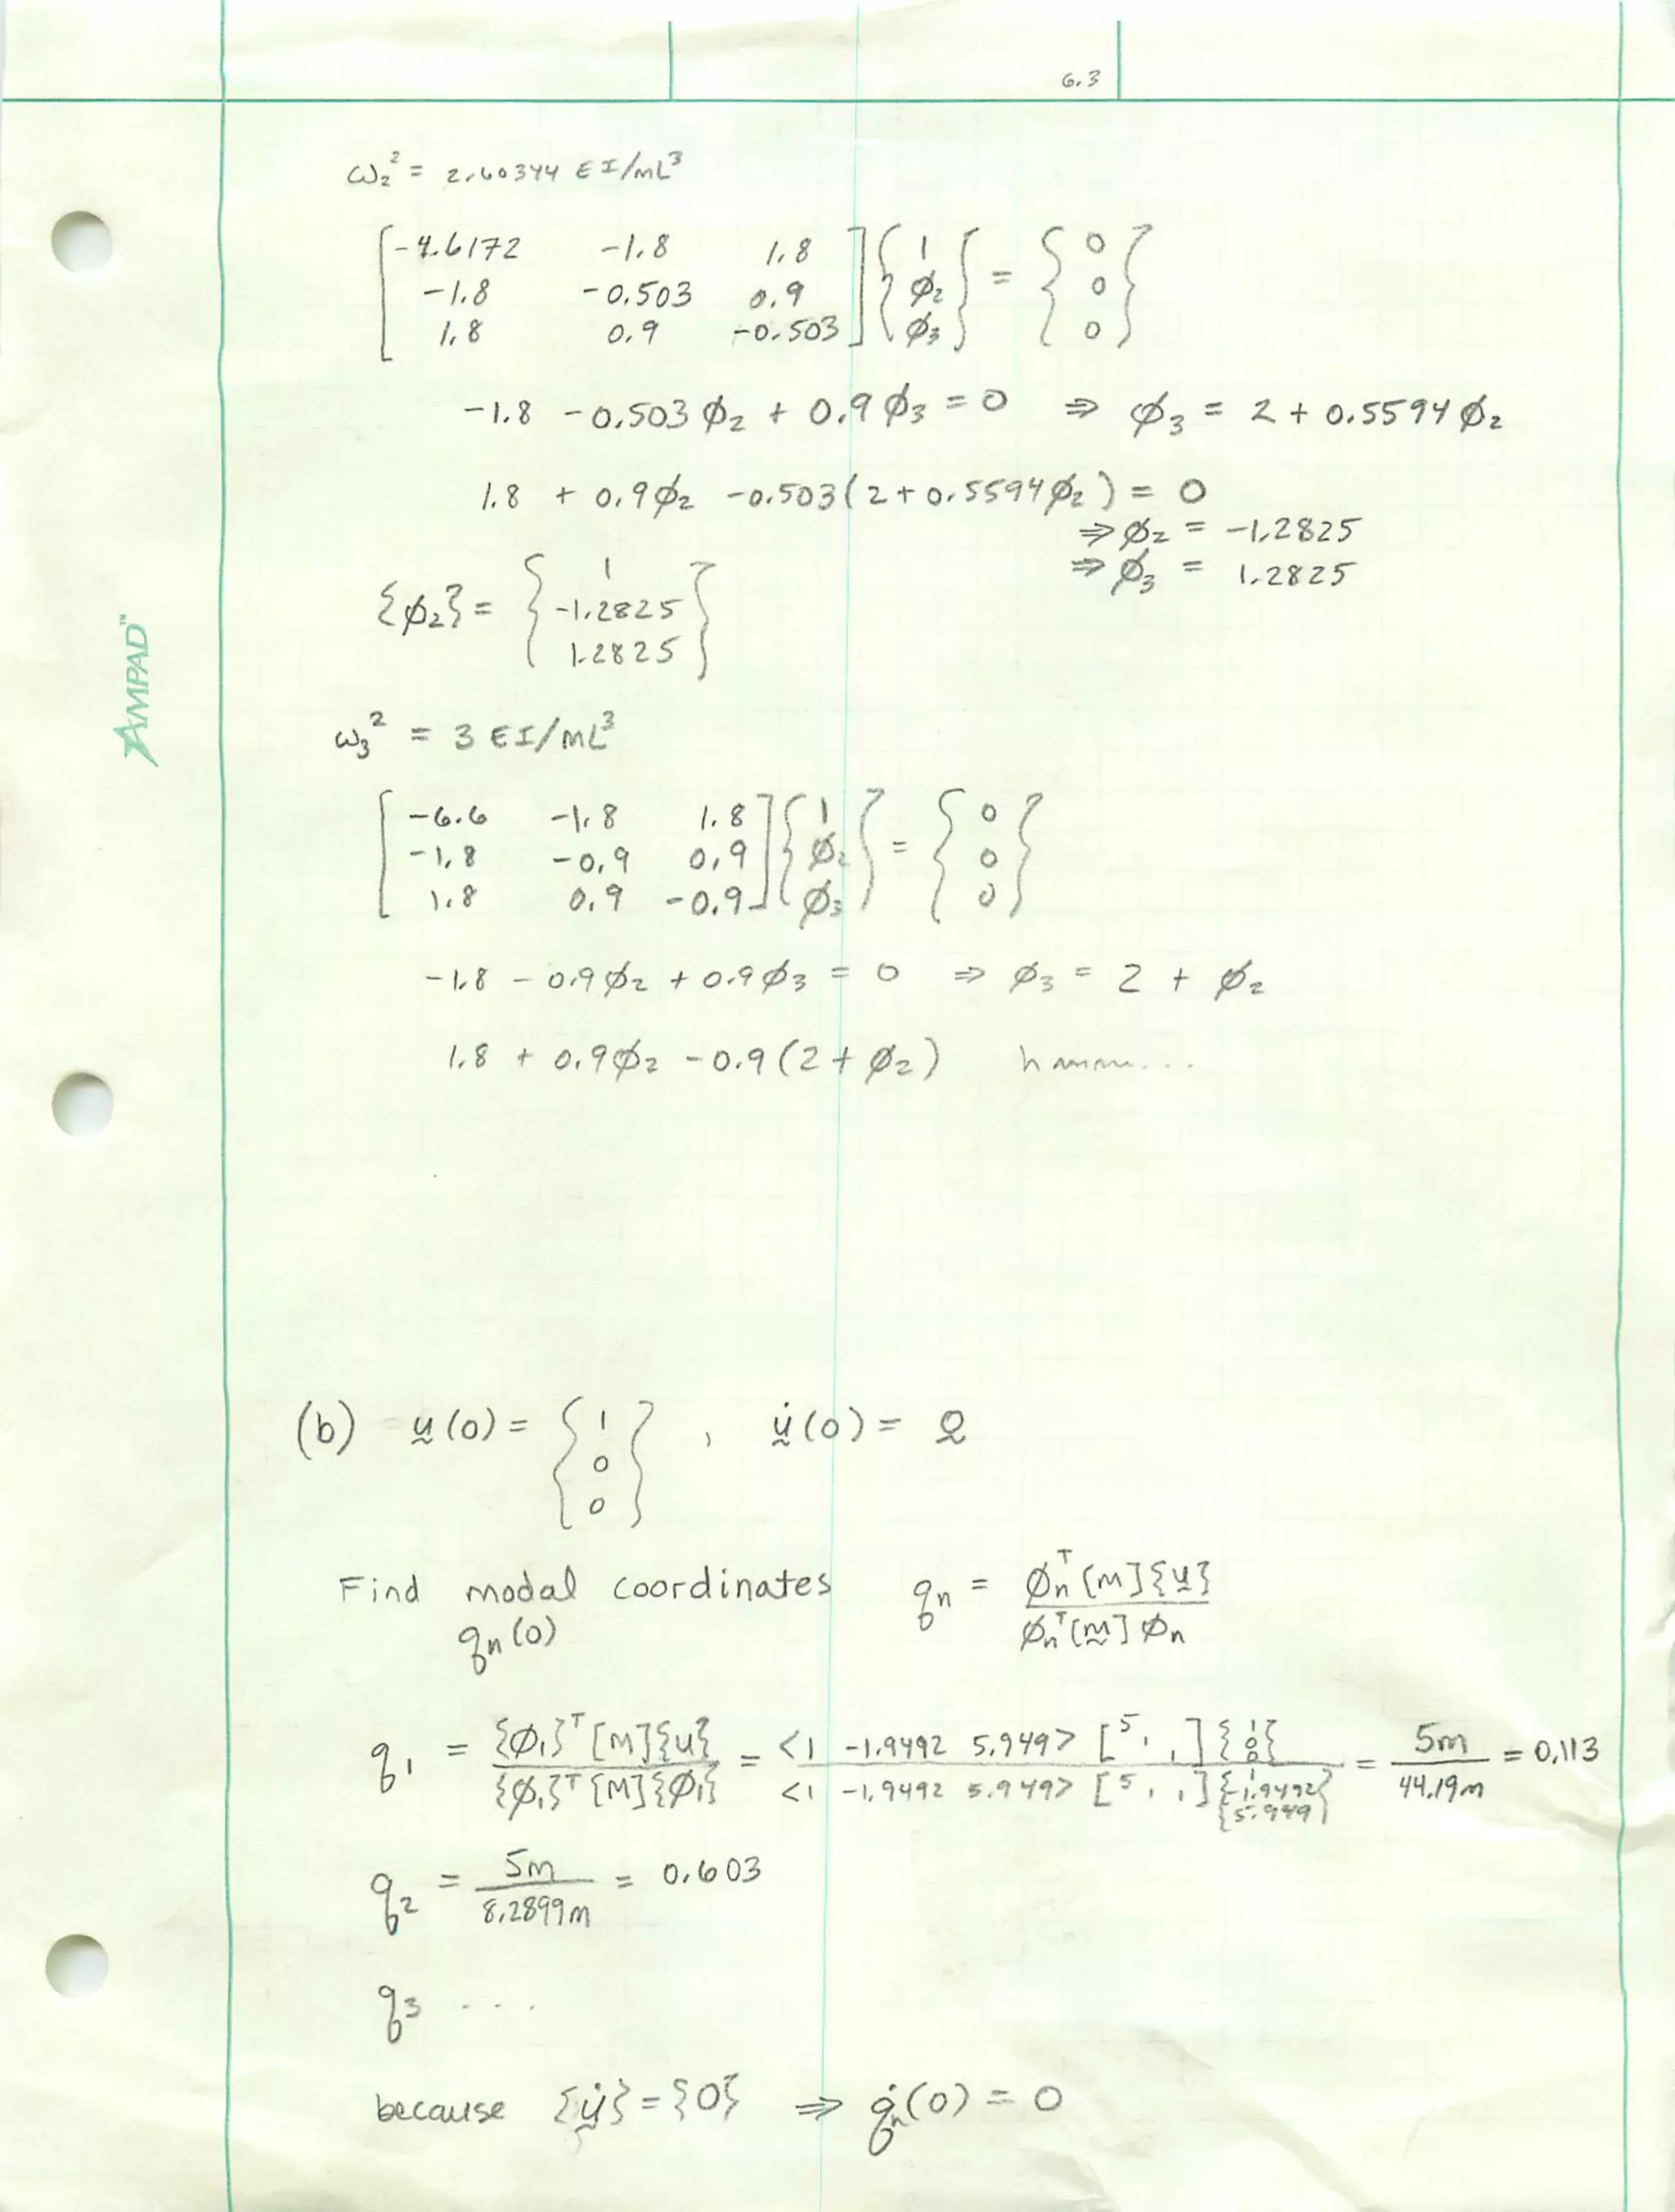 6.3
ω₂² = 2.60344 EI/mL³
[-4.6172 -1.8 1.8] {1} = {0}
[-1.8 -0.503 0.9] {φ₂} {0}
[1.8 0.9 -0.503] {φ₃} {0}
-1.8 -0.503 φ₂ + 0.9 φ₃ = 0 ⇒ φ₃ = 2 + 0.5594 φ₂
1.8 + 0.9φ₂ -0.503(2+0.5594φ₂) = 0
⇒ φ₂ = -1.2825
⇒ φ₃ = 1.2825
{φ₂} = {1
-1.2825
1.2825}
AMPAD™
ω₃² = 3 EI/mL³
[-6.6 -1.8 1.8] {1} = {0}
[-1.8 -0.9 0.9] {φ₂} {0}
[1.8 0.9 -0.9] {φ₃} {0}
-1.8 - 0.9φ₂ + 0.9φ₃ = 0 ⇒ φ₃ = 2 + φ₂
1.8 + 0.9φ₂ -0.9(2+φ₂) hmmm...
(b) u(0) = {1 0 0}, u̇(0) = 0
Find modal coordinates qn = φnᵀ[m]{u} / φnᵀ[m]φn
qn(0)
q₁ = {φ₁}ᵀ[M]{u} / {φ₁}ᵀ[M]{φ₁} = <1 -1.9492 5.949> [5 1 1]{1 0 0} / <1 -1.9492 5.949> [5 1 1]{1 -1.9492 5.949} = 5m / 44.19m = 0.113
q₂ = 5m / 8.2899m = 0.603
q₃ ....
because {u̇} = {0} ⇒ q̇n(0) = 0